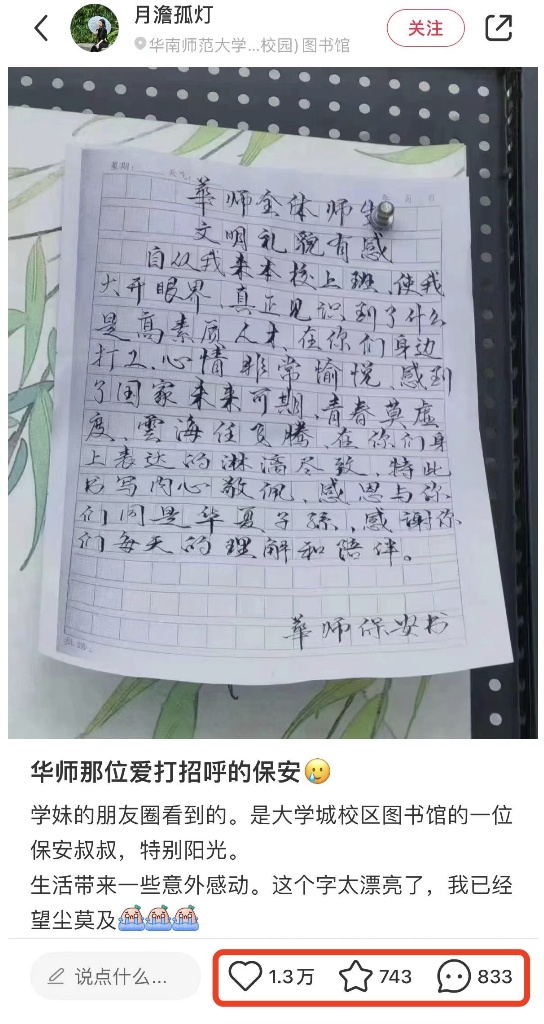 月澹孤灯
关注
华南师范大学...校园) 图书馆
星期: 天气:
華师全体师生
文明礼貌有感
自从我来本校上班、使我
大开眼界、真正见识到了什么
是高素质人才、在你们身边
打工、心情非常愉悦、感到
了国家未来可期、青春莫虚
度、雲海任飞腾、在你们身
上表达的淋漓尽致、特此
书写内心敬佩、感恩与你
们同是华夏子孫、感谢你
们每天的理解和陪伴。
華师保安书
华师那位爱打招呼的保安
学妹的朋友圈看到的。是大学城校区图书馆的一位
保安叔叔，特别阳光。
生活带来一些意外感动。这个字太漂亮了，我已经
望尘莫及
说点什么...
1.3万
743
833